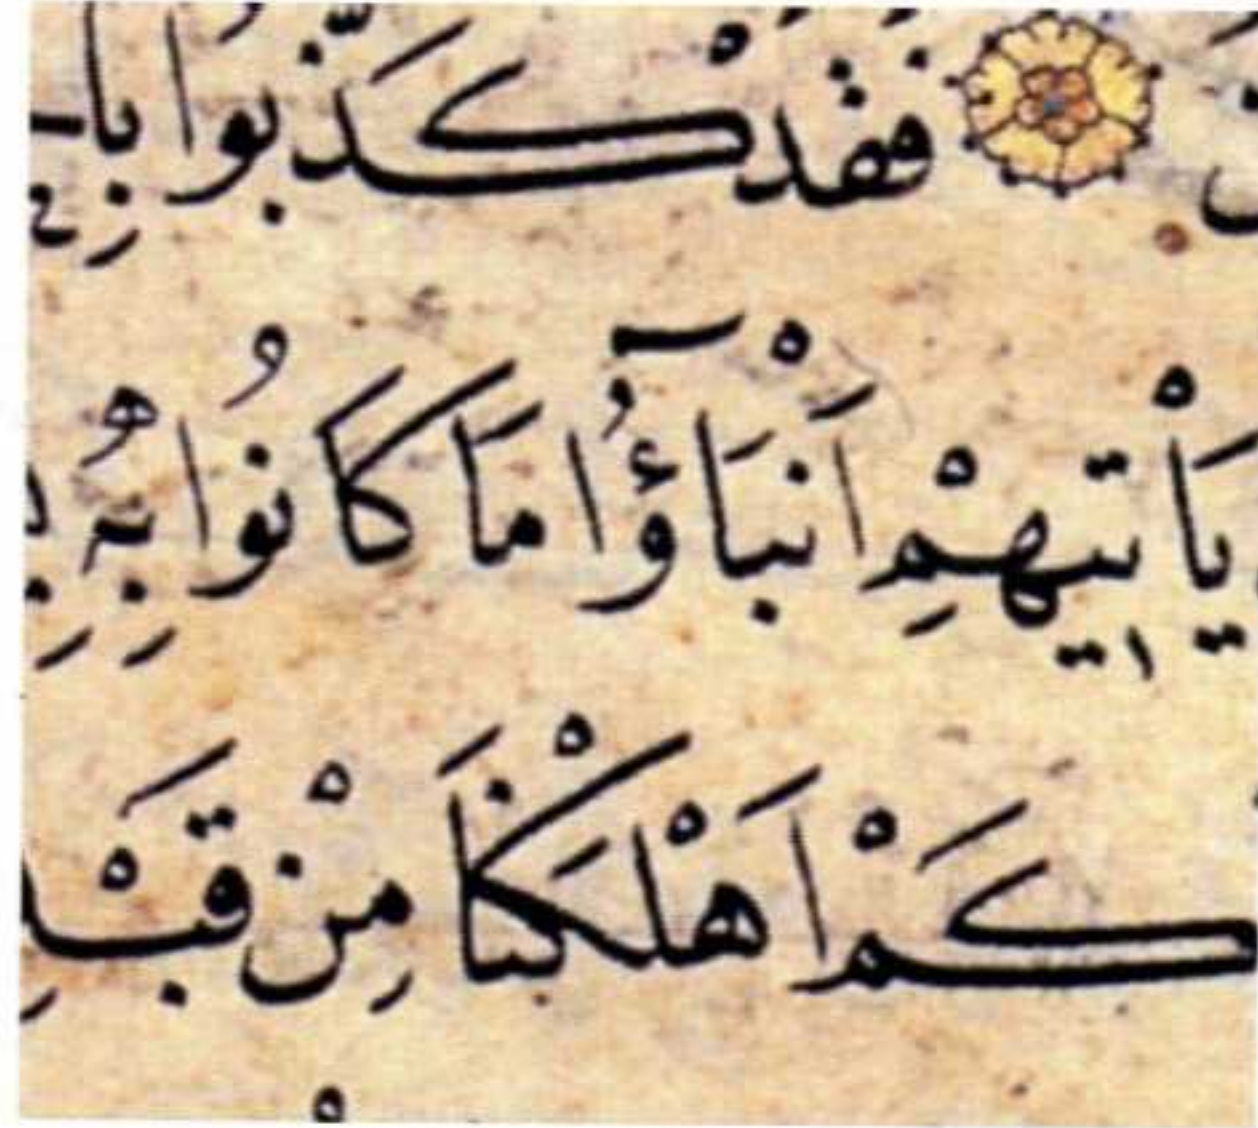 فَقَدْ كَذَّبُوا بِا
يَأْتِيهِمْ اَنْبَاۤؤُا مَا كَانُوا بِهِ
كَمْ اَهْلَكْنَا مِنْ قَبْلِ